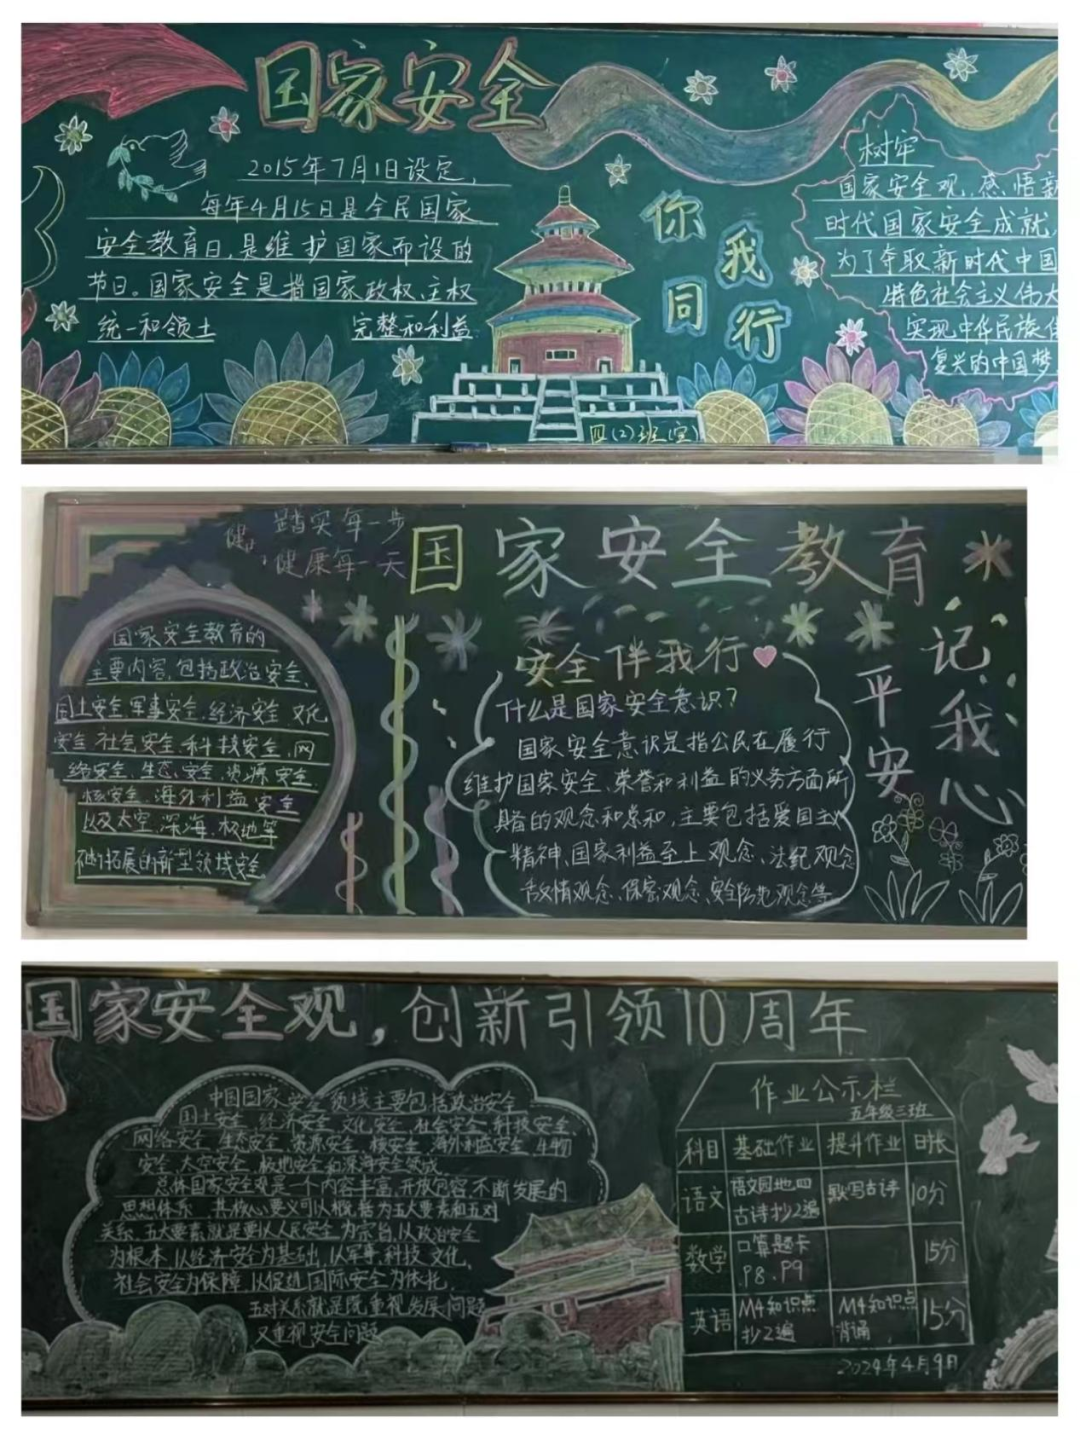 国家安全
2015年7月1日设定，
每年4月15日是全民国家
安全教育日，是维护国家而设的
节日。国家安全是指国家政权、主权
统一和领土 完整和利益
你
同
我
行
四(2)班(宣)
树牢
国家安全观，感悟新
时代国家安全成就，
为了夺取新时代中国
特色社会主义伟大
实现中华民族伟
复兴的中国梦
踏实每一步
健康每一天
国家安全教育
国家安全教育的
主要内容，包括政治安全、
国土安全、军事安全、经济安全、文化
安全、社会安全、科技安全、网
络安全、生态安全、资源安全、
核安全、海外利益安全
以及太空、深海、极地等
拓展的新型领域安全
安全伴我行
什么是国家安全意识？
国家安全意识是指公民在履行
维护国家安全、荣誉和利益的义务方面所
具备的观念和总和，主要包括爱国主义
精神、国家利益至上观念、法纪观念
敌情观念、保密观念、安全防范观念等
平安
记我心
国家安全观，创新引领10周年
中国国家安全领域主要包括政治安全
国土安全、经济安全、文化安全、社会安全、科技安全、
网络安全、生态安全、资源安全、核安全、海外利益安全、生物
安全、太空安全、极地安全和深海安全等
总体国家安全观是一个内容丰富、开放包容、不断发展的
思想体系，其核心要义可以概括为五大要素和五对
关系，五大要素就是要以人民安全为宗旨，以政治安全
为根本，以经济安全为基础，以军事、科技、文化、
社会安全为保障，以促进国际安全为依托，
五对关系就是既重视发展问题
又重视安全问题
作业公示栏
五年级三班
科目 基础作业 提升作业 时长
语文 语文园地四 古诗抄2遍 默写古诗 10分
数学 口算题卡 P8、P9 15分
英语 M4知识点 抄2遍 M4知识点 背诵 15分
2024年4月9日